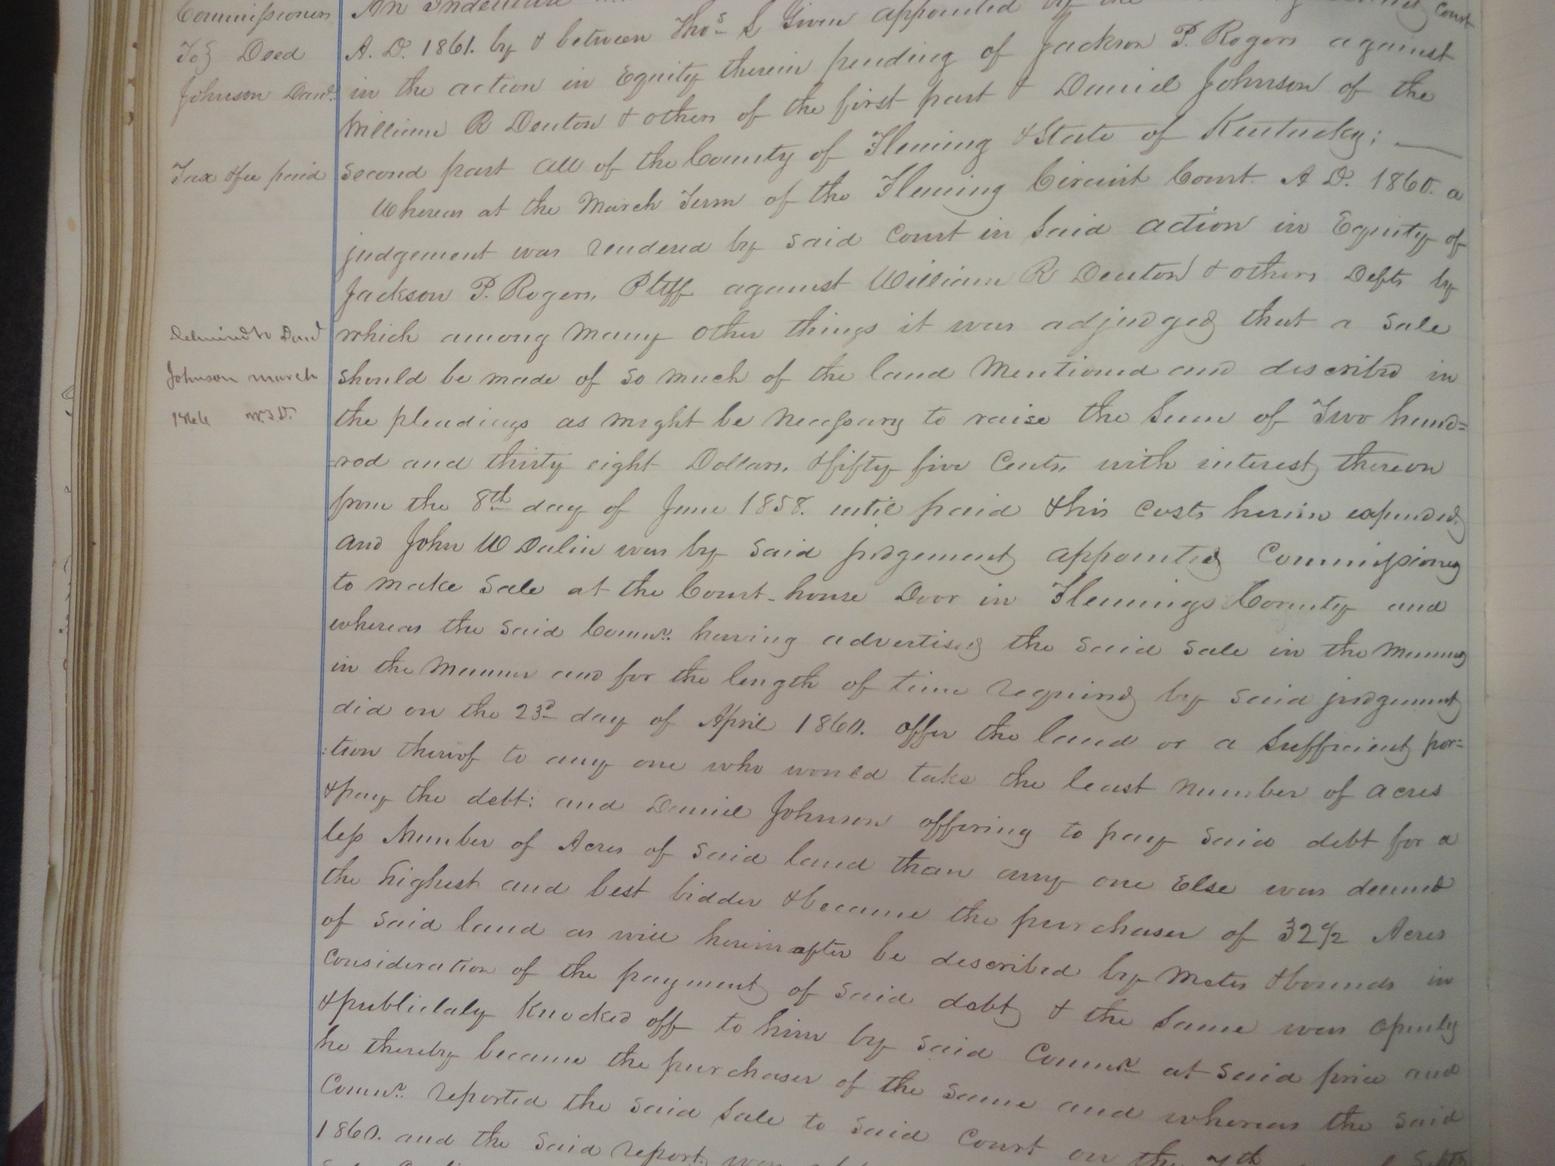 Commissioner
To } Deed
Johnson Danl
Tax & fee paid
Delivered to Danl
Johnson march
An Indenture
A. D. 1861. by & between Thos S Given appointed by the court
in the action in Equity therein pending of Jackson P. Rogers against
William R Denton & others of the first part & Daniel Johnson of the
second part all of the County of Fleming & State of Kentucky;
Whereas at the March Term of the Fleming Circuit Court A D. 1860. a
judgement was rendered by said Court in said action in Equity of
Jackson P. Rogers, Pltff against William R Denton & others Defts by
which among many other things it was adjudged that a sale
should be made of so much of the land mentioned and described in
the pleadings as might be necessary to raise the sum of Two hund=
=red and thirty eight Dollars, & fifty five Cents with interest thereon
from the 8th day of June 1858. until paid & his costs herein expended,
and John W Dulin was by said judgement appointed Commissioner
to make sale at the Court-house Door in Flemings County and
whereas the said Commr. having advertised the said sale in the manner
in the manner and for the length of time required by said judgement
did on the 23d day of April 1860. offer the land or a sufficient por=
:tion thereof to any one who would take the least number of acres
& pay the debt: and Daniel Johnson offering to pay said debt for a
less Number of Acres of said land than any one Else was deemed
the highest and best bidder & became the purchaser of 32 1/2 Acres
of said land as will herein after be described by metes & bounds in
consideration of the payment of said debt & the same was openly
& publickly Knocked off to him by said Commr at said price and
he thereby became the purchaser of the same and whereas the said
Commr. reported the said sale to said Court on the 7th
1860. and the said report was